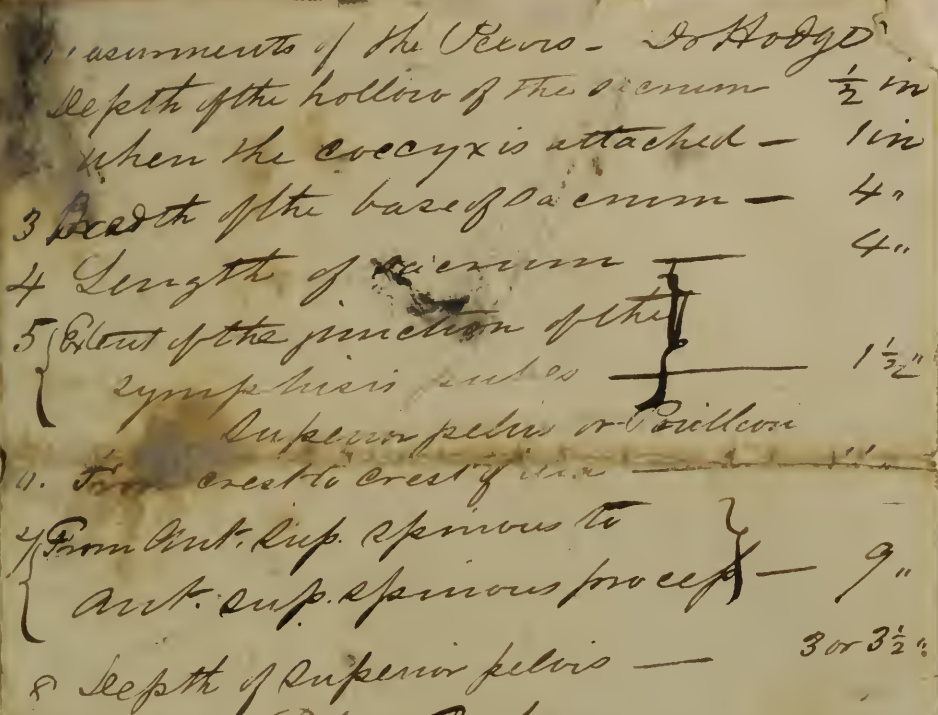 measurments of the Pelvis - Dr Hodge
Depth of the hollow of the sacrum ½ in
when the coccyx is attached - 1 in
3 Breadth of the base of Sacrum - 4"
4 Length of sacrum - 4"
5 Extent of the junction of the
symphisis pubes - 1½"
Superior pelvis or
From crest to crest of ilia
7 From Ant. Sup. spinous to
Ant. sup. spinous process - 9"
8 Depth of Superior pelvis - 3 or 3½"